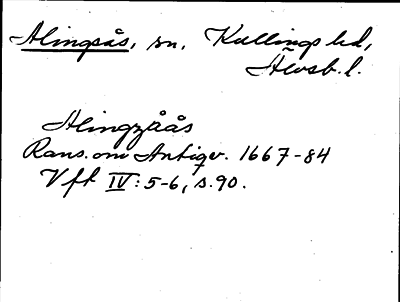 Alingsås, sn, Kullings hd,
Älvsb. l.
Alingzåås
Rans. om Antiqv. 1667-84
Vft IV: 5-6, s. 90.